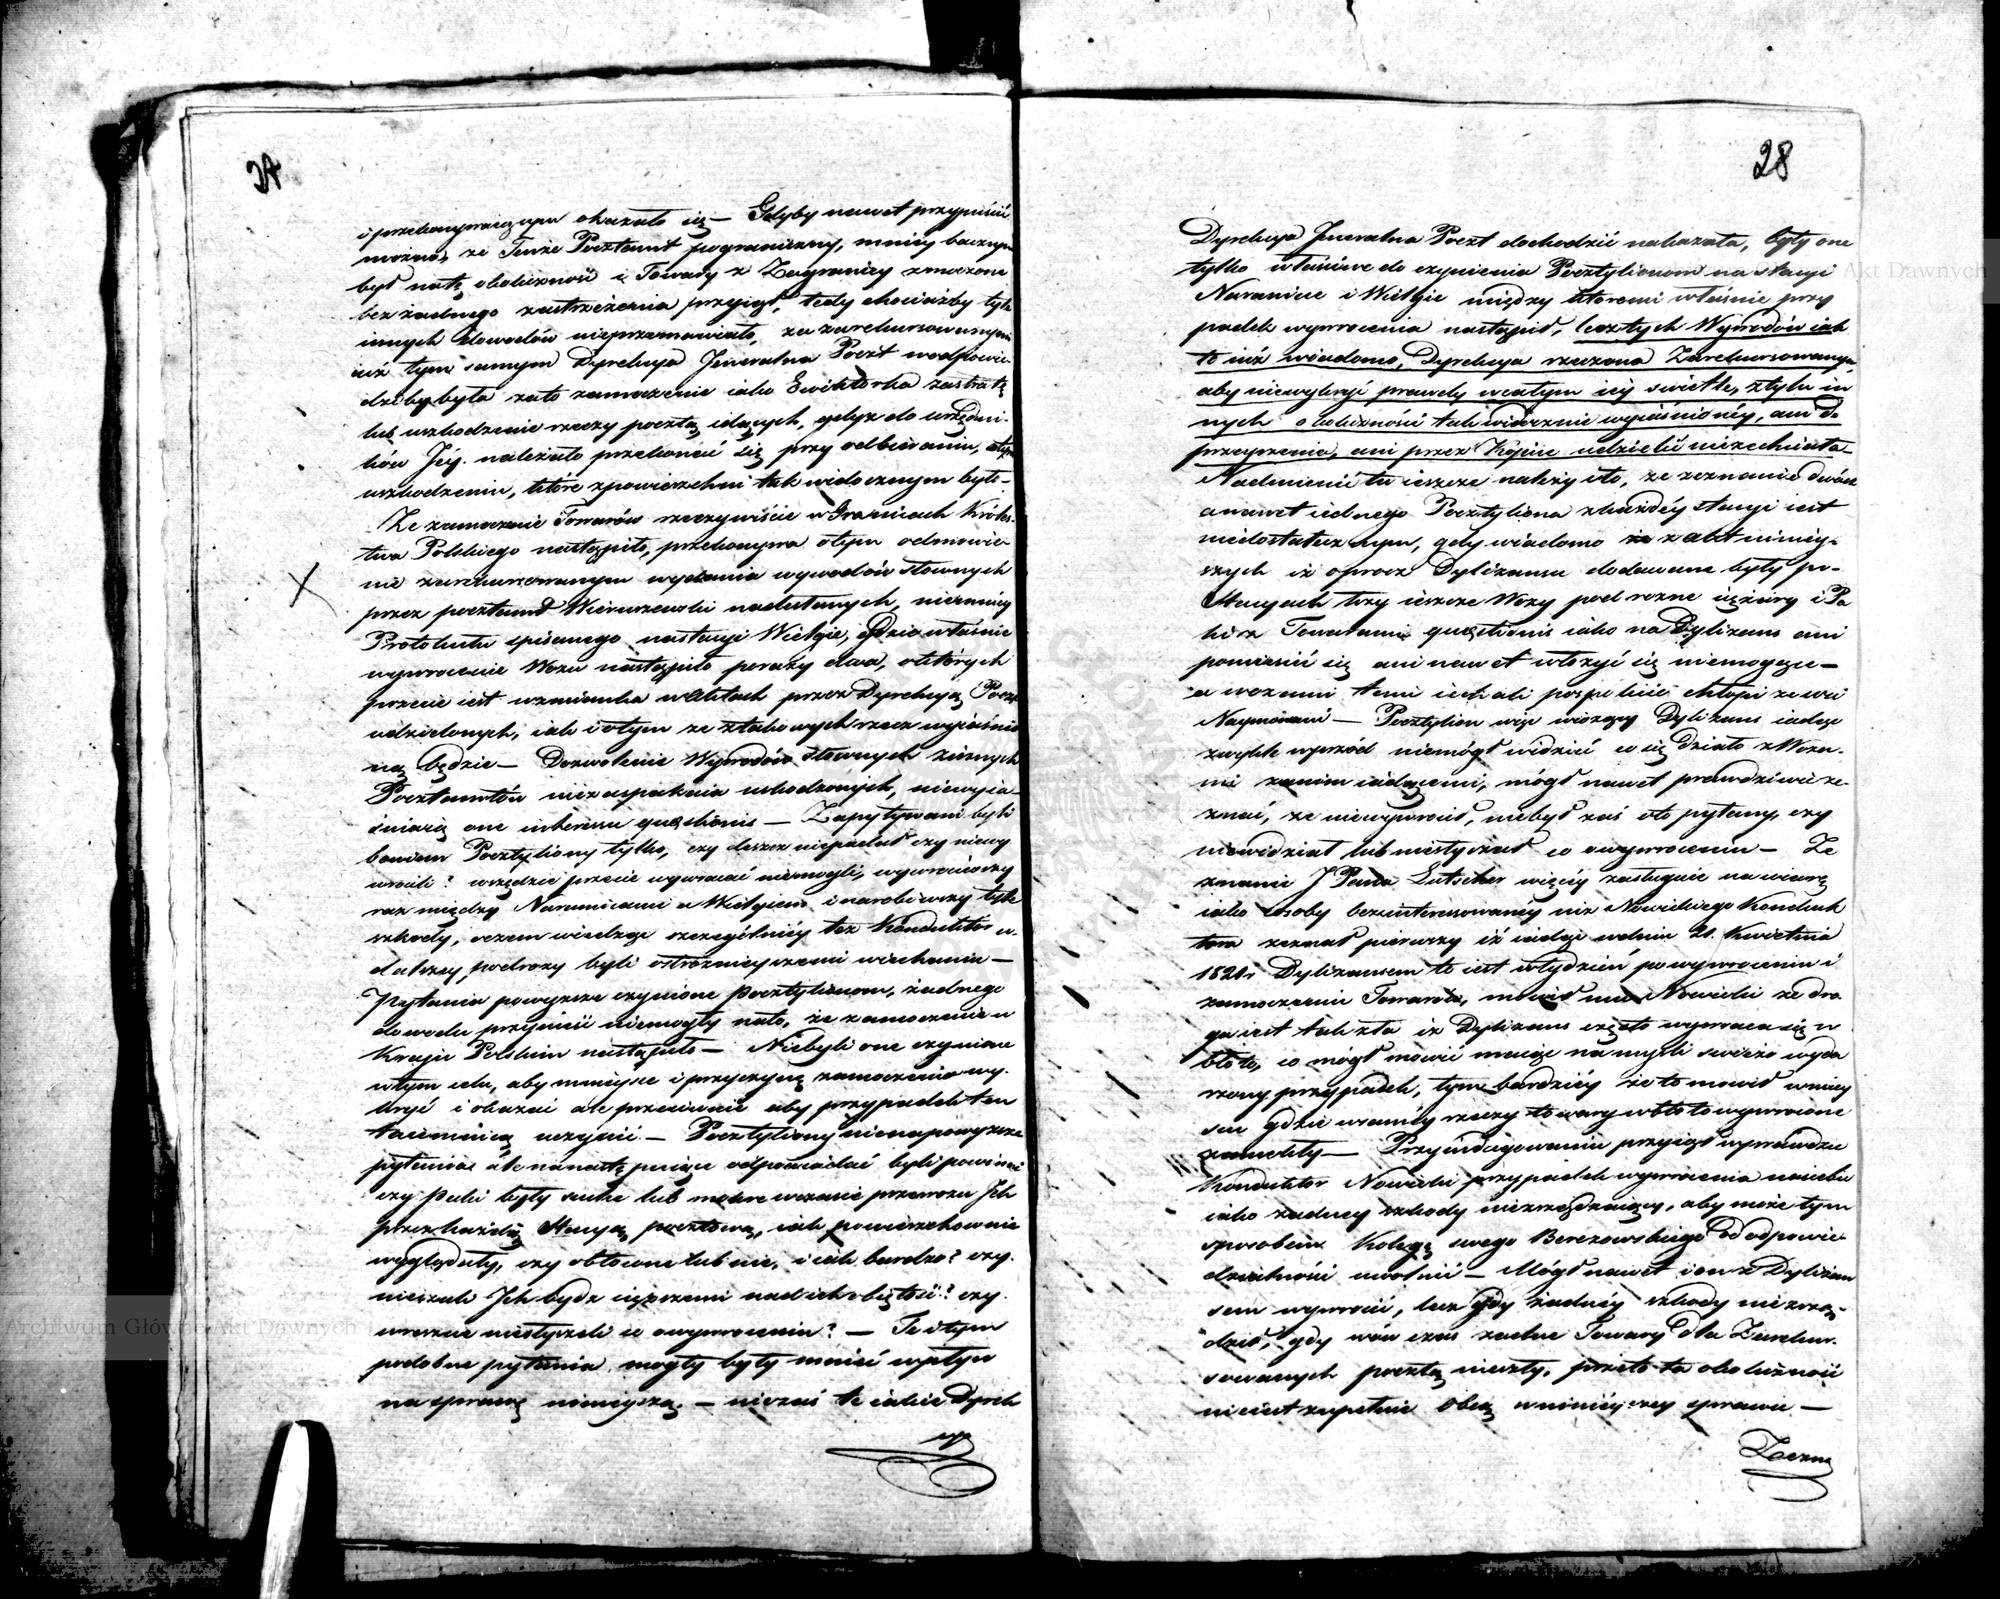 28
i przekonywaiącym okazało się — Gdyby nawet przypuścić
można, ze Tenże Pocztamt pograniczny, mniéy bacznym
był na tę okoliczność i Towary z Zagranicy zmoczone
bez żadnego zastrzeżenia przyiął, tedy chociażby tyle
innych dowodów nieprzemawiało, za zarekursowanymi
iuż tym samym Dyrekcya Jeneralna Poczt w odpowie-
dzibybyła za to zamoczenie iako Ewiktorka za stratę
lub uszkodzenie rzeczy pocztą idących, gdyż do urzędni-
ków Jéy. należało przekonać się przy odbieraniu, o tym
uszkodzeniu, które zpowierzchni tak widocznym było —
Ze zamoczenie Towarów rzeczywiście w Granicach Króles-
twa Polskiego nastąpiło, przekonywa o tym odmowie-
nie zarekursowanym wydania wywodów słownych
przez pocztamt Wieruszewski nadesłanych, niemniéy
Protokułu spisanego na stacyi Wielgie, gdzie właśnie
wywrocenie Wozu nastąpiło po razy dwa, o których
przecie iest wzmianka w Aktach przez Dyrekcyą Poczt
udzielonych, iak i o tym ze z takowych rzecz wyiaśnio
ną będzie — Dozwolenie Wywodów słownych z innych
Pocztamtów niezaspakaia uchodzonych, niewyia-
śniaią one interessu quaestionis — Zapytywani byli
bowiem Pocztyliony tylko, czy deszcz niepadał czy niewy
wrócili? wszędzie przecie wywracać niemogli, wywrociwszy
raz między Naramicami a Wielgiem i narobiwszy tyle
szkody, oczem wiedząc szczególniéy też Konduktor w
dalszey podrozy byli ostrożnieyszemi wiechaniu —
Pytania powyższe czynione Pocztylionom, żadnego
dowodu przynieść niemogły na to, że zamoczenie w
Kraju Polskim nastąpiło — Niebyli one czynione
w tym celu, aby mieysce i przyczynę zamoczenia wy-
kryć i okazać ale przeciwnie aby przypadek ten
taiemnicą uczynić. — Pocztyliony nie na powyższe
pytania ale na następuiące odpowiadać byli powinni
czy Paki były suche lub mokre wczasie przewozu Jch
przez każdą Stacyą pocztową, iak powierzchownie
wyglądały, czy obłocone lub nie, i iak bardzo? czy
nieszuli Jch bydz cięższemi nad ich obiętość? czy
wreszcie niesłyszeli co o wywroceniu? — Te i tym
podobne pytania mogły były mieć wpływ
na sprawę ninieyszą. — nie zaś te iakie Dyrek
cya
Dyrekcya Jeneralna Poczt dochodzić nakazała, były one
tylko właściwe do czynienia Pocztylionom na stacyi
Naramice i Wielgie między któremi właśnie przy
padek wywrocenia nastąpił, lecz tych Wywodów iak
to iuż wiadomo, Dyrekcya rzeczona Zarekursowanym,
aby niewykryć prawdy wcałym iéy swietle, z tylu in
nych okoliczności tak widocznie wyiaśnionéy, ani do
przeyrzenia, ani przez Kopiie udzielić niezechciała —
Nadmienić tu ieszcze należy i to, ze zeznanie dwóch
a nawet iednego Pocztyliona z każdéy stacyi iest
niedostatecznym, gdy wiadomo iest z akt ninéy-
szych iż oprocz Dyliżansu dodawane były po
Stacyach trzy ieszcze Wozy pod rozne ciężary i Pa
ki z Towarami quaestionis iako na Dyliżans ani
pomieścić się ani nawet włożyć się niemogące —
a wozami temi iechali pospolicie chłopi ze wsi
Naymowani — Pocztylion więc wiozący Dyliżans iadąc
zwykle wprzód niemógł widzieć co się działo z Woza-
mi za nim iadącemi, mógł nawet prawdziwie ze-
znać, ze niewywrócił, niebył zaś o to pytany, czy
niewidział lub niesłyszał co o wywroceniu — Ze
znanie J Pana Lutscher więcéy zasługuie na wiarę
iako osoby bezinteresowanéy niż Nowickiego Konduk
tora zeznał pierwszy iż iadąc w dniu 21. Kwietnia
1821r Dyliżansem to iest w tydzień po wywroceniu i
zamoczeniu Towarów, mówił mu Nowicki ze dro
ga iest tak zła iż Dyliżans często wywraca się w
błoto, co mógł mówić maiąc na myśli świeżo wyda
rzony przypadek, tym bardziéy że to mówił w mieys
cu gdzie wraniéy rzeczy towary w błoto wywrocone
zamokły — Przy indagowaniu przyiął wprawdzie
Konduktor Nowicki przypadek wywrocenia na siebie
iako żadney szkody niezrządzaiący, aby może tym
sposobem Kolegę swego Berezowskiego od odpowie-
dzialności uwolnić — Mógł nawet i on z Dyliżan
sem wywrocić, lecz gdy żadnéy szkody niezrzą-
dził, gdy wów czas żadne Towary dla Zarekur-
sowanych pocztą nieszły, przeto ta okoliczność
nieiest zupełnie Obcą w ninieyszey sprawie —
Zezna